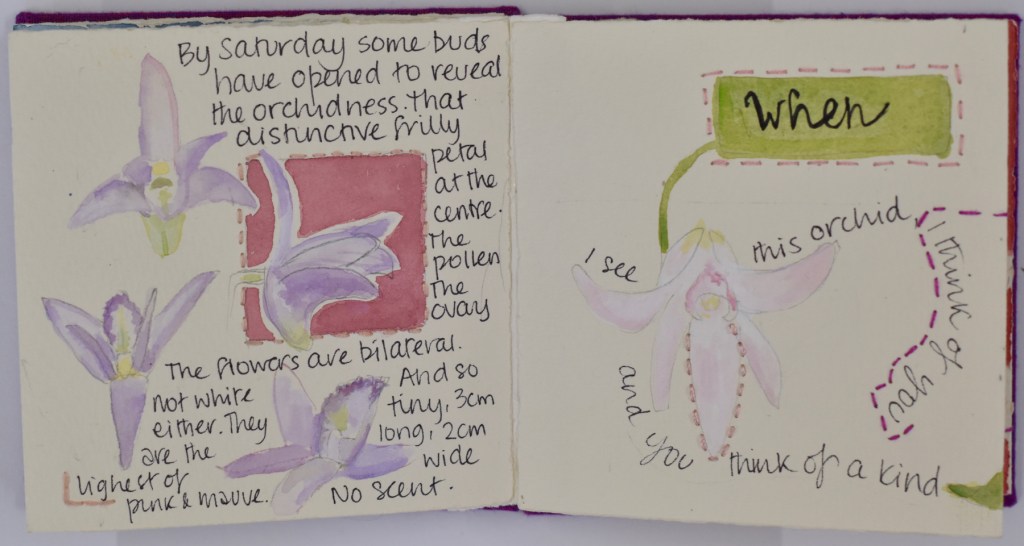 By Saturday some buds
have opened to reveal
the orchidness. That
distinctive frilly
petal
at the
centre.
The
pollen
The
ovary
The flowers are bilateral.
not white
either. They
are the
lighest of
pink & mauve.
And so
tiny, 3cm
long, 2cm
wide
No scent.
When
I see
this orchid
I think of you
and you
think of a kind